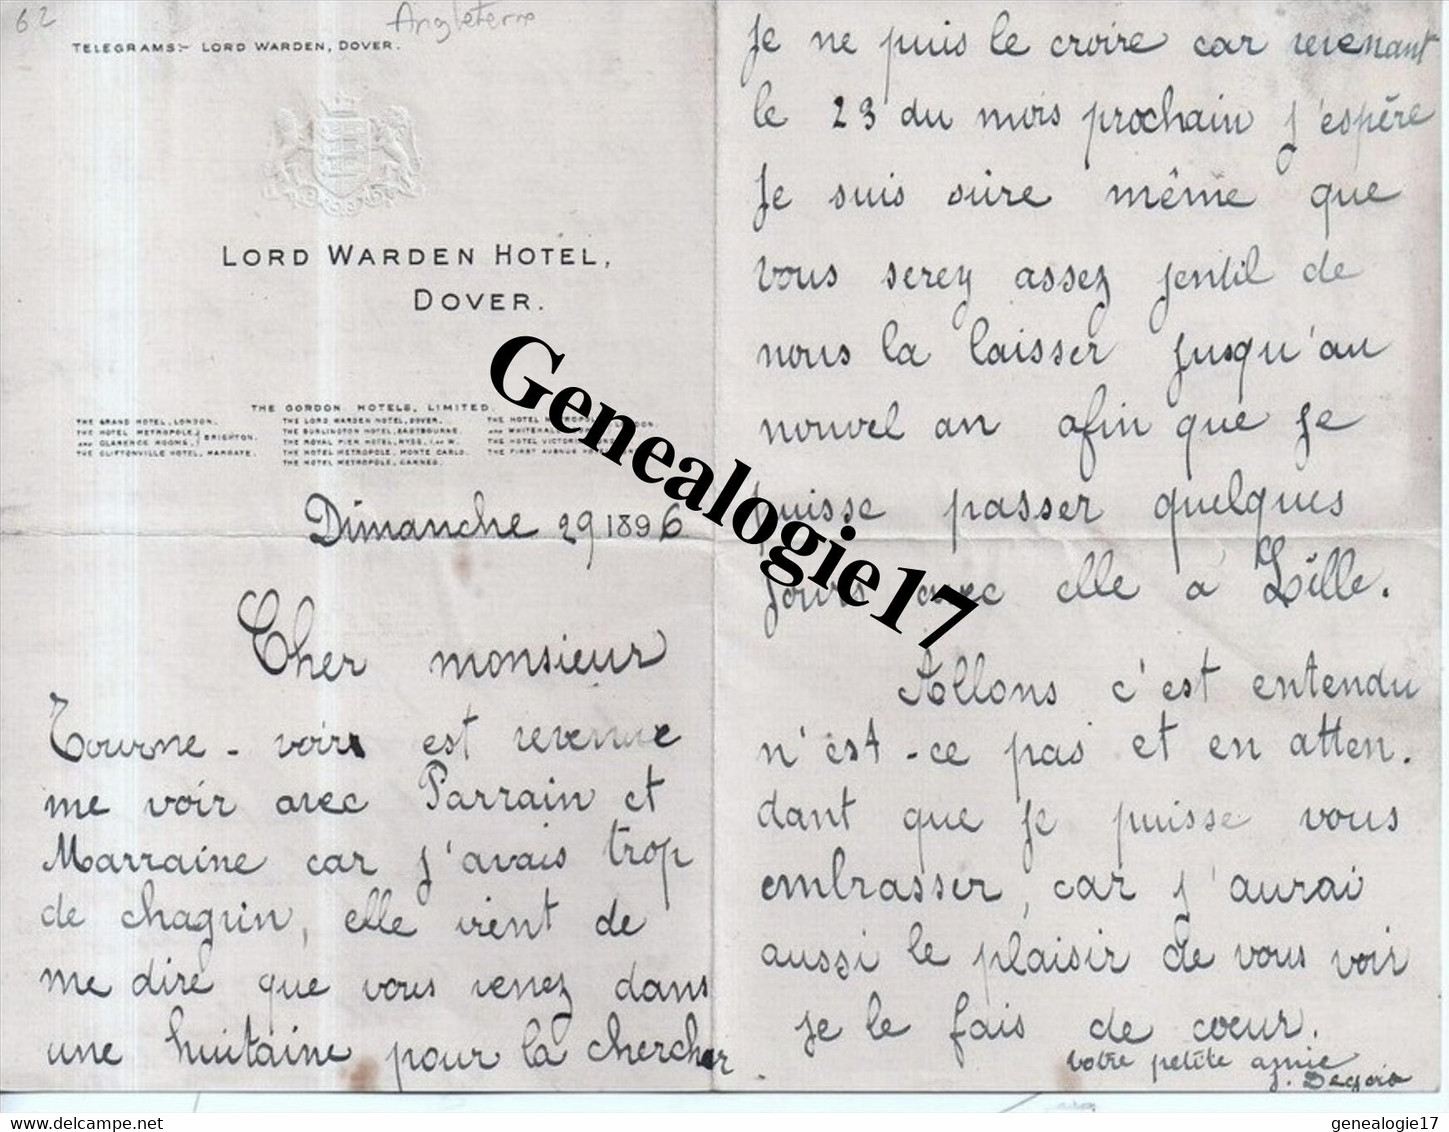 62
Angleterre
TELEGRAMS:- LORD WARDEN, DOVER.
LORD WARDEN HOTEL,
DOVER.
THE GORDON HOTELS, LIMITED.
THE GRAND HOTEL, LONDON.
THE HOTEL METROPOLE,
AND CLARENCE ROOMS, } BRIGHTON.
THE CLIFTONVILLE HOTEL, MARGATE.
THE LORD WARDEN HOTEL, DOVER.
THE BURLINGTON HOTEL, EASTBOURNE.
THE ROYAL PIER HOTEL, RYDE, I. OF W.
THE HOTEL METROPOLE, MONTE CARLO.
THE HOTEL METROPOLE, CANNES.
THE HOTEL
AND WHITEHALL
THE HOTEL
THE FIRST AVENUE
Dimanche 29 1896
Cher monsieur
Tourne - voir est revenue
me voir avec Parrain et
Marraine car j'avais trop
de chagrin, elle vient de
me dire que vous venez dans
une huitaine pour la chercher
je ne puis le croire car revenant
le 23 du mois prochain j'espère
Je suis sûre même que
vous serez assez jentil de
nous la laisser jusqu'au
nouvel an afin que je
puisse passer quelques
jours avec elle a Lille.
Allons c'est entendu
n'est-ce pas et en atten.
dant que je puisse vous
embrasser, car j'aurai
aussi le plaisir de vous voir
je le fais de cœur.
votre petite amie
J.
Genealogie17
genealogie17
delcampe.net